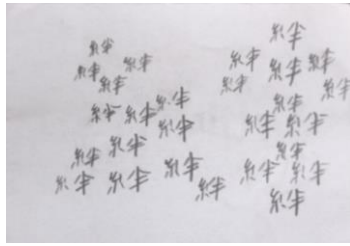 絆
絆 絆
絆
絆
絆 絆
絆
絆
絆
絆
絆 絆
絆
絆
絆 絆 絆
絆 絆
絆
絆 絆
絆
絆 絆
絆